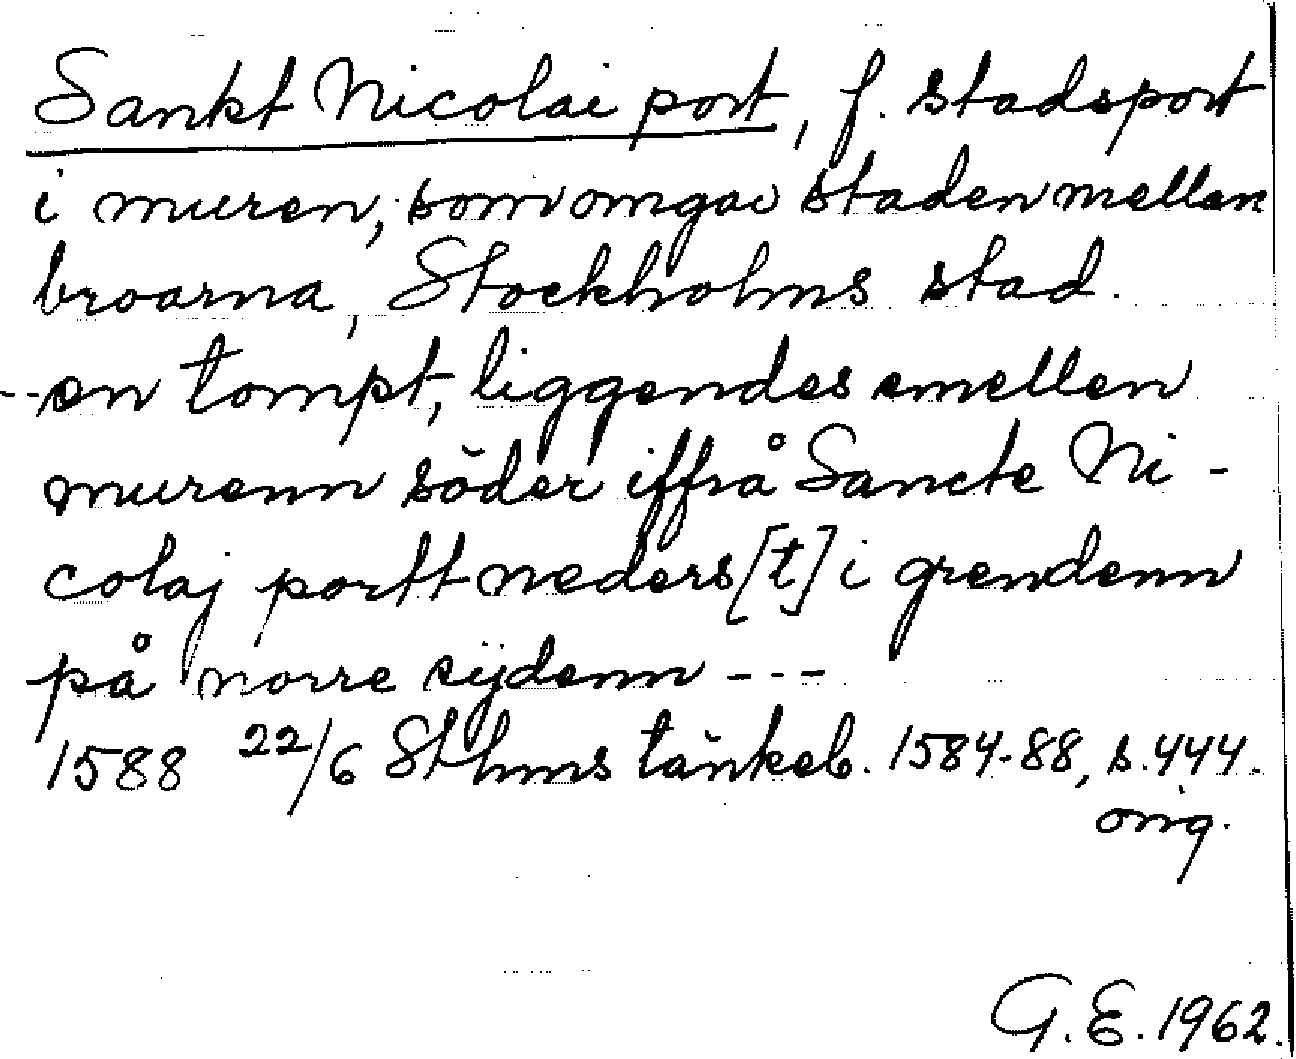 Sankt Nicolai port, f. stadsport
i muren, som omgav staden mellan
broarna, Stockholms stad.
--- en tompt, liggendes emellen
murenn söder iffrå Sancte Ni-
colaj portt neders[t] i grendenn
på norre sijdenn ---
1588 22/6 Sthms tänkeb. 1584-88, s. 444.
orig.
G. E. 1962.